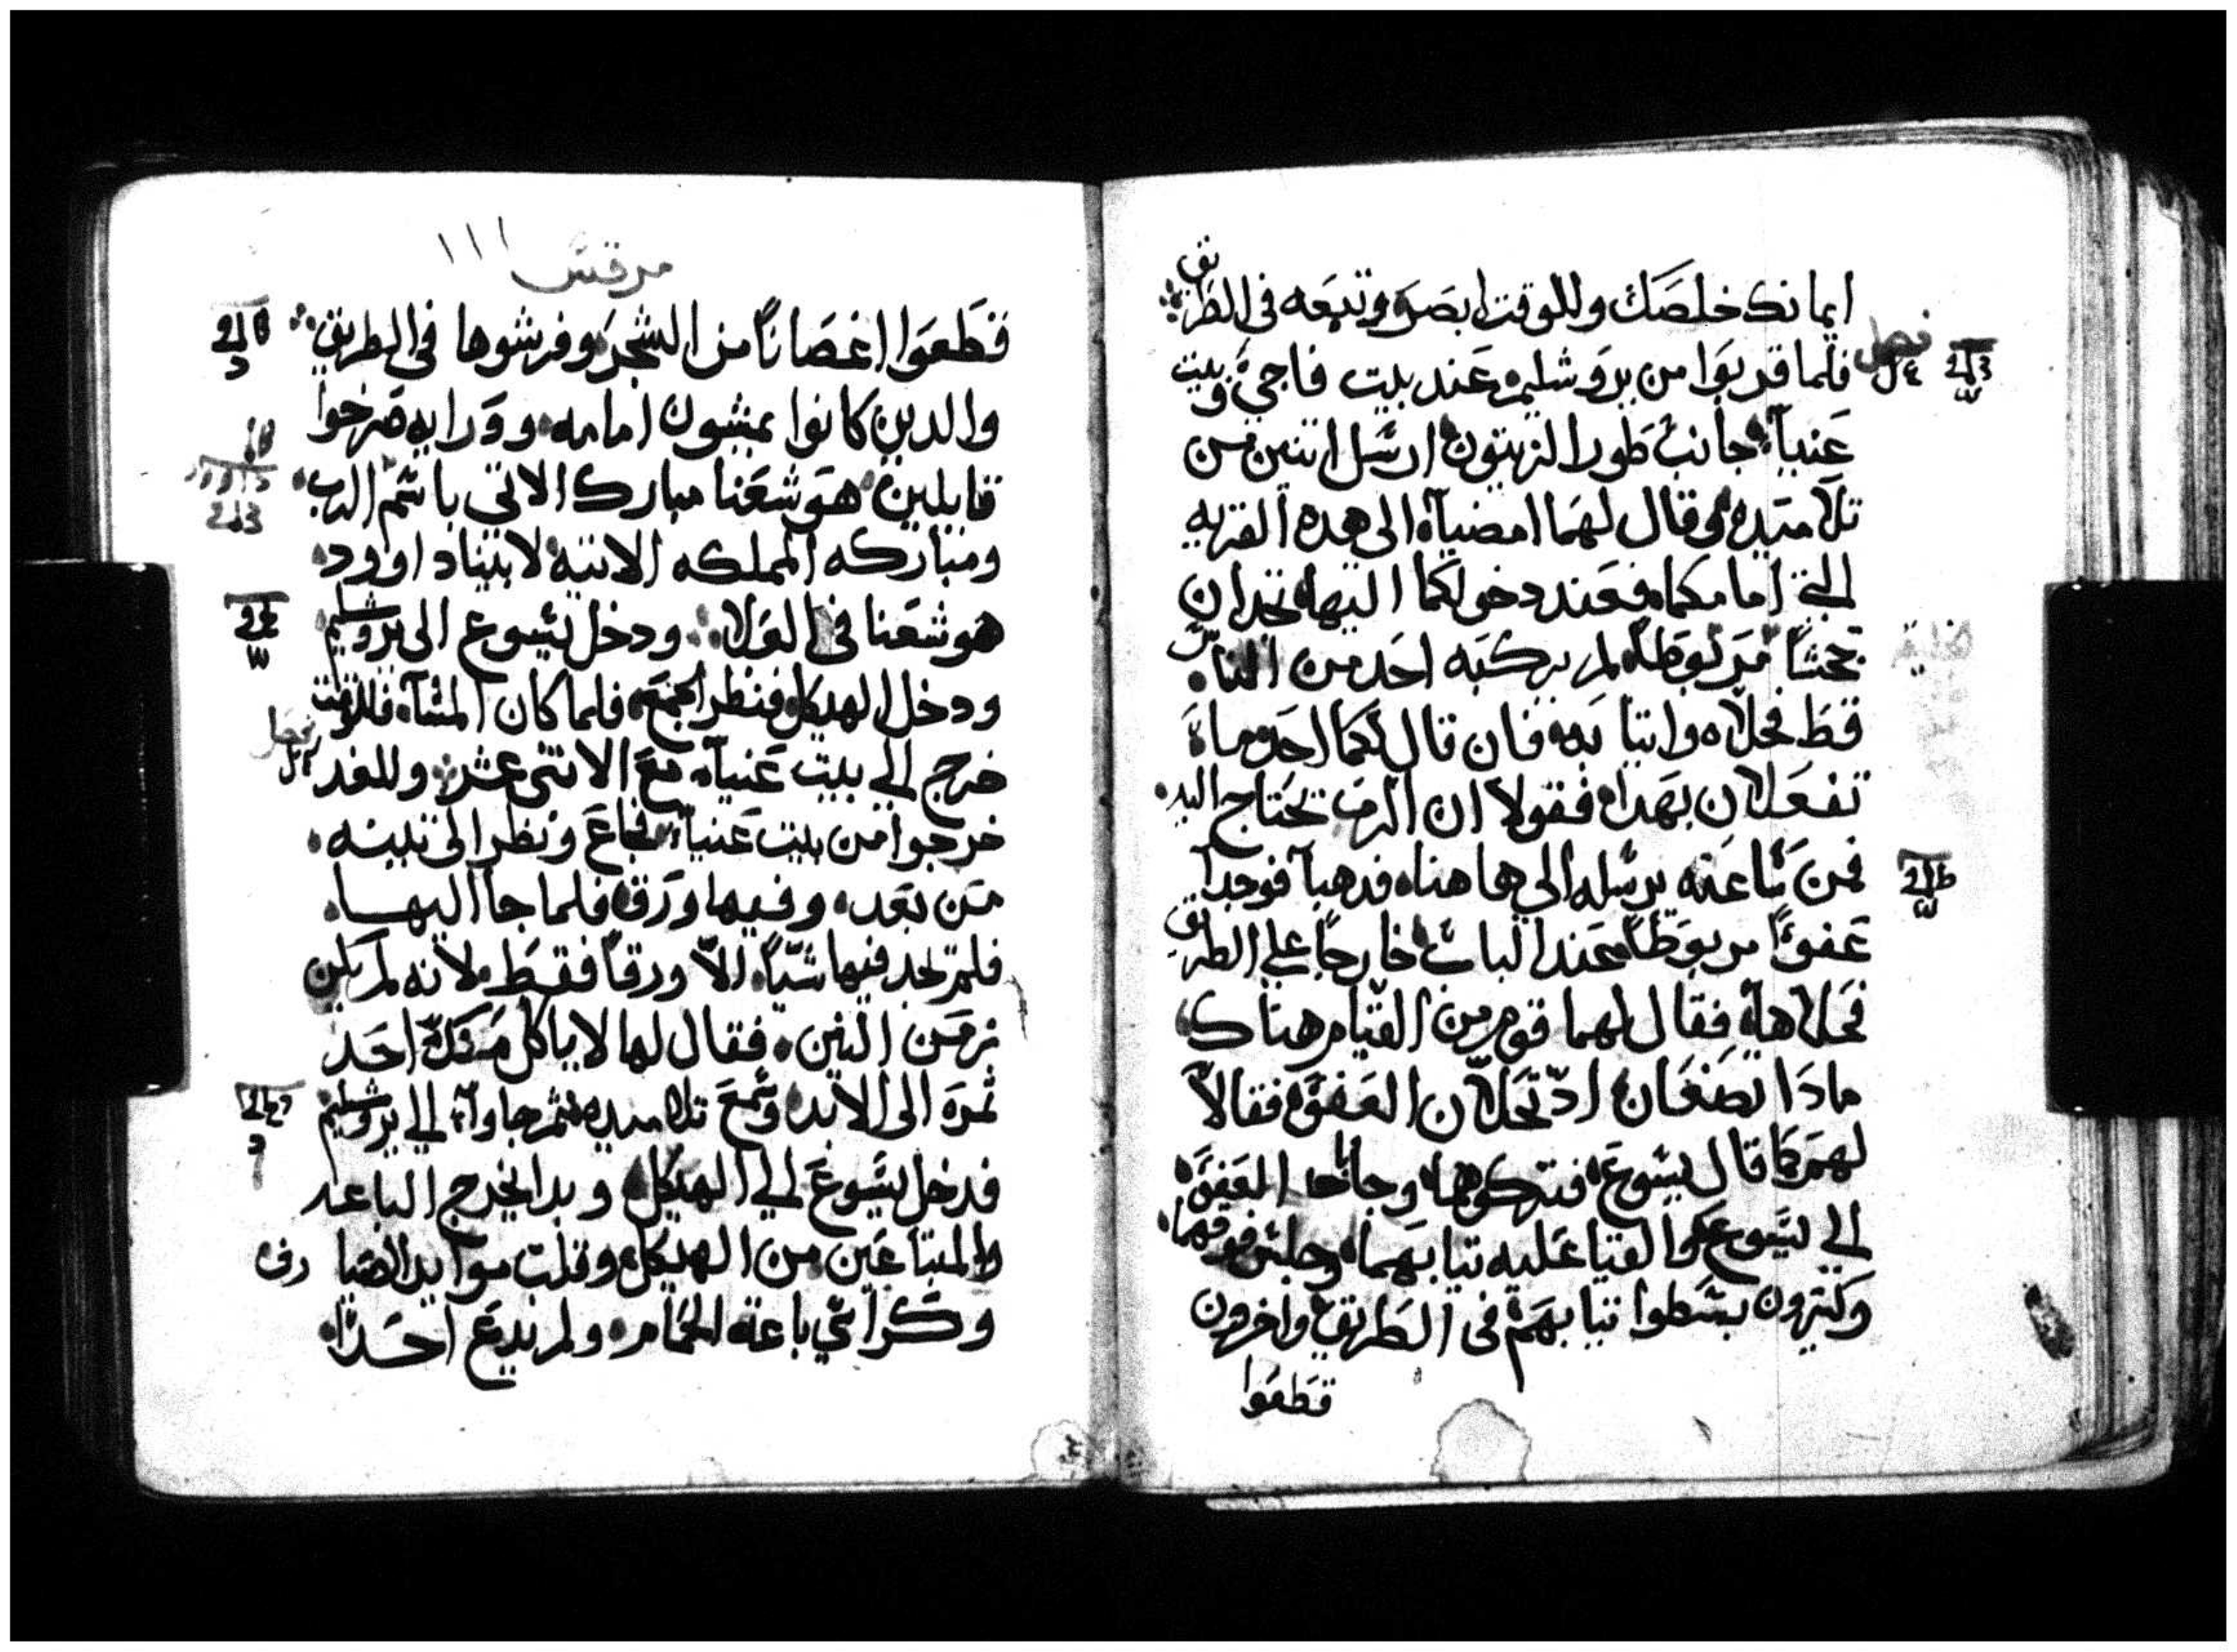 ايمانك خلصك وللوقت ابصر وتبعه في الطريق
فصل
فلما قربوا من يروشليم عند بيت فاجي وبيت
عنيا جانب طور الزيتون ارسل اتنين من
تلاميده وقال لهما امضيا الى هده القريه
التي امامكما فعند دخولكما اليها تجدان
جحشًا مربوطًا لم يركبه احد من الناس
قط فحلاه واتيا به فان قال لكما احد ما
تفعلان بهدا فقولا ان الرب يحتاج اليه
فمن ساعته يرسله الي هاهنا فدهبا فوجدا
عفوًا مربوطًا عند الباب خارجًا علي الطريق
فحلاه فقال لهما قوم من القيام هناك
مادا تصنعان اد تحلان العفو فقالا
لهم كما قال يسوع فتركوهما وجا ا العفو
الي يسوع والقيا عليه تيابهما وجلس فوقهما
وكتيرون بسطوا تيابهم في الطريق واخرون
قطعوا
مرقس ١١١
قطعوا اغصانًا من الشجر وفرشوها في الطريق
والدين كانوا يمشون امامه وورايه صرخوا
قايلين هوشعنا مبارك الاتي باسم الرب
ومباركه المملكه الاتيه لابينا داوود
هوشعنا في العلا ودخل يسوع الى يروشليم
ودخل الهيكل فنظر الجمع فلما كان المسآ فللوقت
فصل
خرج الي بيت عنيا مع الاتنى عشر وللغد
خرجوا من بيت عنيا فجاع ونظر الى تينه
من بعد وفيها ورق فلما جا اليها
فلم يجد فيها شيًا الا ورقًا فقط لانه لم يكن
زمن التين فقال لها لا ياكل منك احد
تمره الى الابد وسمع تلاميده تم جاوا الي يروشليم
فدخل يسوع الي الهيكل وبدا يخرج الباعه
والمبتاعين من الهيكل وقلب موايد الصيارف
وكراسي باعة الحمام ولم يدع احدًا